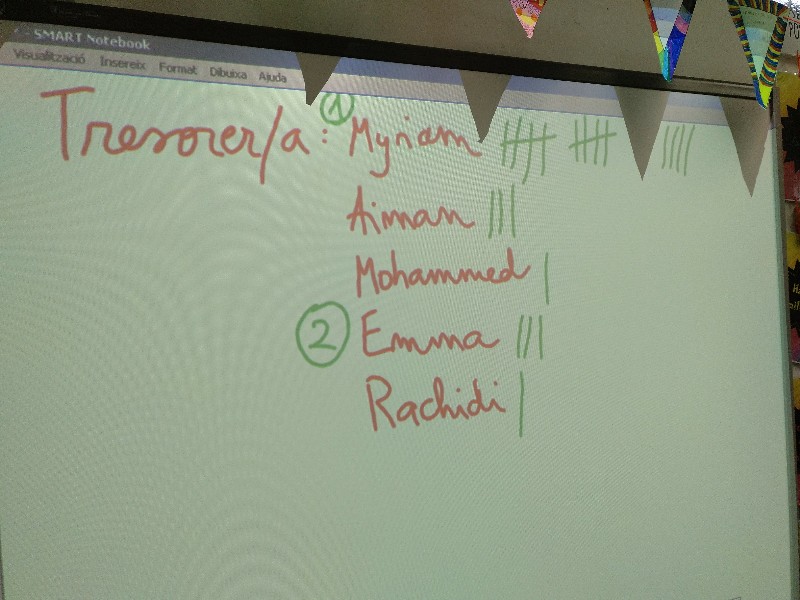 - SMART Notebook
Visualització Insereix Format Dibuixa Ajuda
Tresorer/a: ① Myriam
Aiman
Mohammed
② Emma
Rachidi